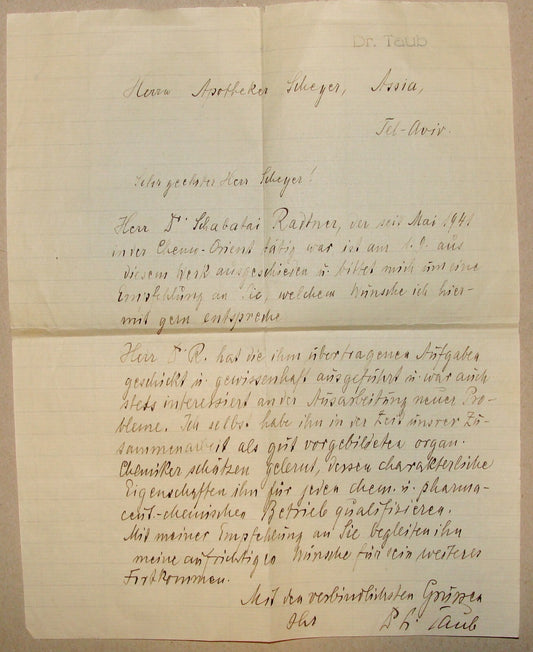 Dr. Taub
Herrn Apotheker Scheyer, Assia,
Tel-Aviv.
Sehr geehrter Herr Scheyer!
Herr Dr Schabatai Radtner, der seit Mai 1941
in der Chemo-Orient tätig war ist am 1.9. aus
diesem Werk ausgeschieden u. bittet mich um eine
Empfehlung an Sie, welchem Wunsche ich hier-
mit gern entspreche
Herr Dr R. hat die ihm übertragenen Aufgaben
geschickt u. gewissenhaft ausgeführt u. war auch
stets interessiert an der Ausarbeitung neuer Pro-
bleme. Ich selbst habe ihn in der Zeit unsrer Zu-
sammenarbeit als gut vorgebildeten organ.
Chemiker schätzen gelernt, dessen charakterliche
Eigenschaften ihn für jeden chem. u. pharma-
ceut-chemischen Betrieb qualifizieren.
Mit meiner Empfehlung an Sie begleiten ihn
meine aufrichtigen Wünsche für sein weiteres
Fortkommen.
Mit den verbindlichsten Grüssen
Ihr Taub